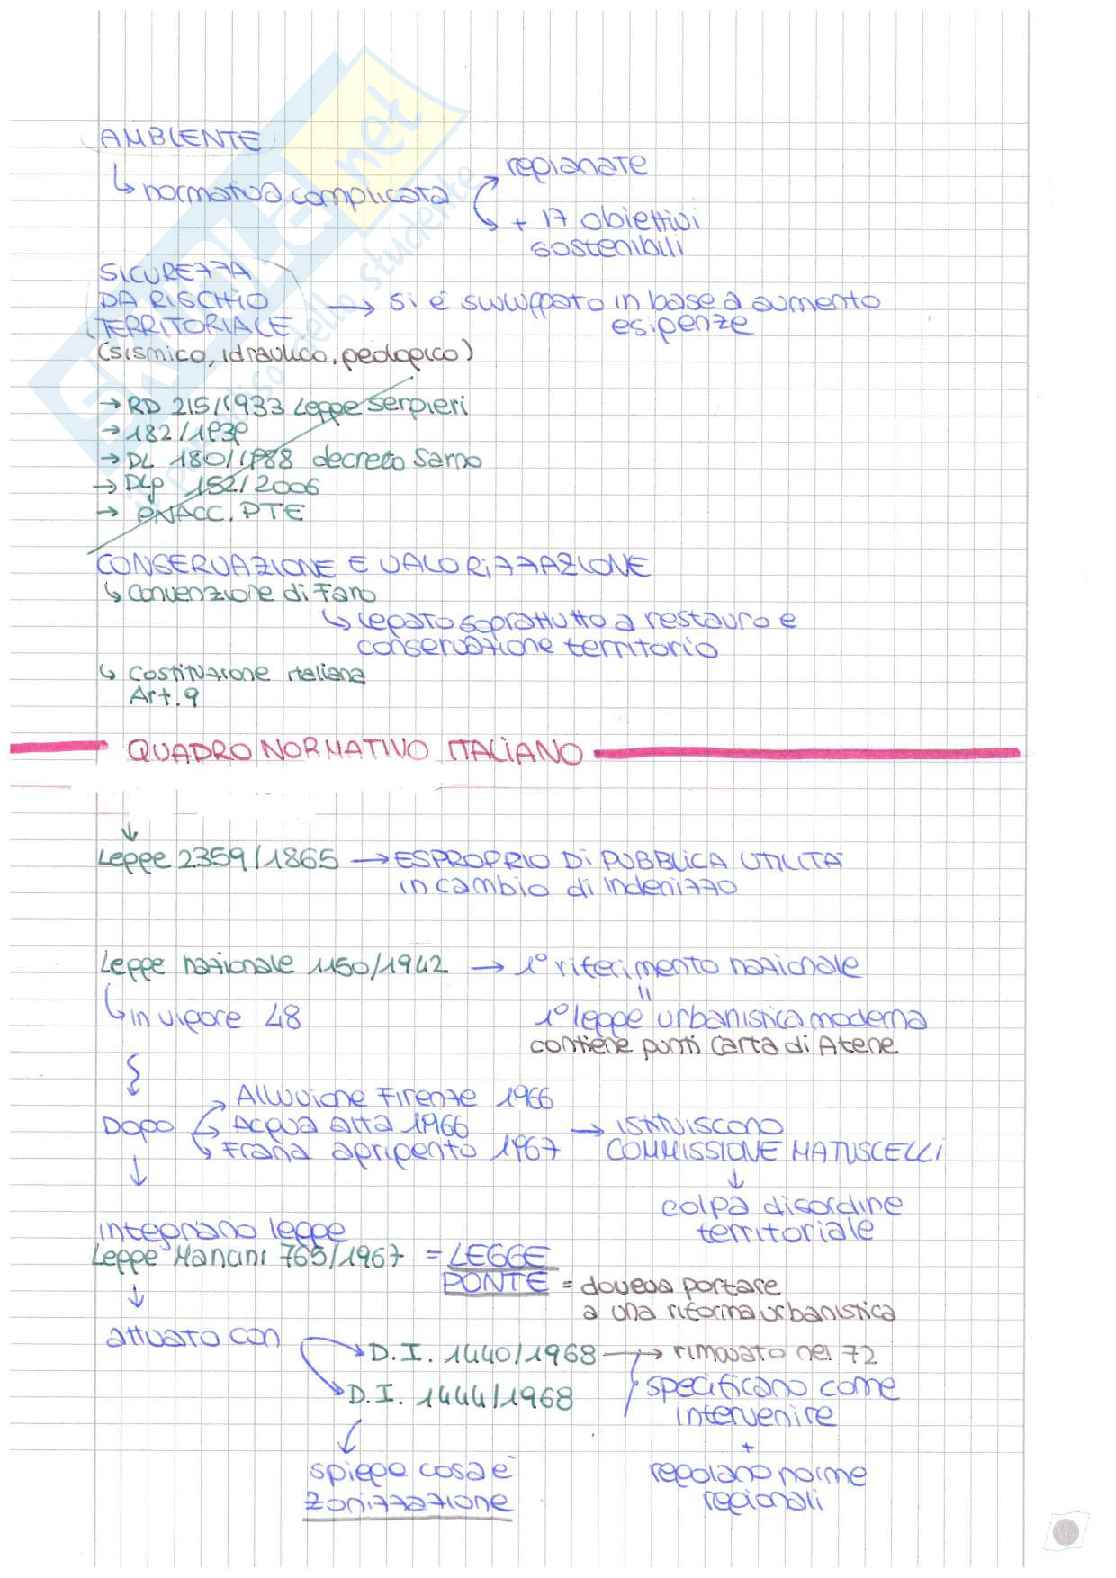 AMBIENTE
↳ normativa complicata
regionale
+ 17 obiettivi
sostenibili
SICUREZZA
DA RISCHIO → si è sviluppato in base a aumento
TERRITORIALE esigenze
(sismico, idraulico, geologico)
→ RD 215/1933 Legge Serpieri
→ 182/1939
→ DL 180/1988 decreto Sarno
→ DLg 152/2006
→ PNACC, PTE
CONSERVAZIONE E VALORIZZAZIONE
↳ Convenzione di Faro
↳ legato soprattutto a restauro e
conservazione territorio
↳ Costituzione italiana
Art. 9
QUADRO NORMATIVO ITALIANO
↓
Legge 2359/1865 → ESPROPRIO DI PUBBLICA UTILITA'
in cambio di indenizzo
Legge nazionale 1150/1942 → 1° riferimento nazionale
"
↳ in vigore 48 1° legge urbanistica moderna
contiene punti Carta di Atene
Alluvione Firenze 1966
Dopo Acqua alta 1966 → ISTITUISCONO
Frana agrigento 1967 COMMISSIONE MATUSCELLI
↓ ↓
colpa disordine
territoriale
integrano legge
Legge Mancini 765/1967 = LEGGE
PONTE = doveva portare
↓ a una riforma urbanistica
attuato con
D.I. 1440/1968 → rinnovato nel 72
D.I. 1444/1968 specificano come
intervenire
+
spiega cosa è regolano norme
zonizzazione regionali